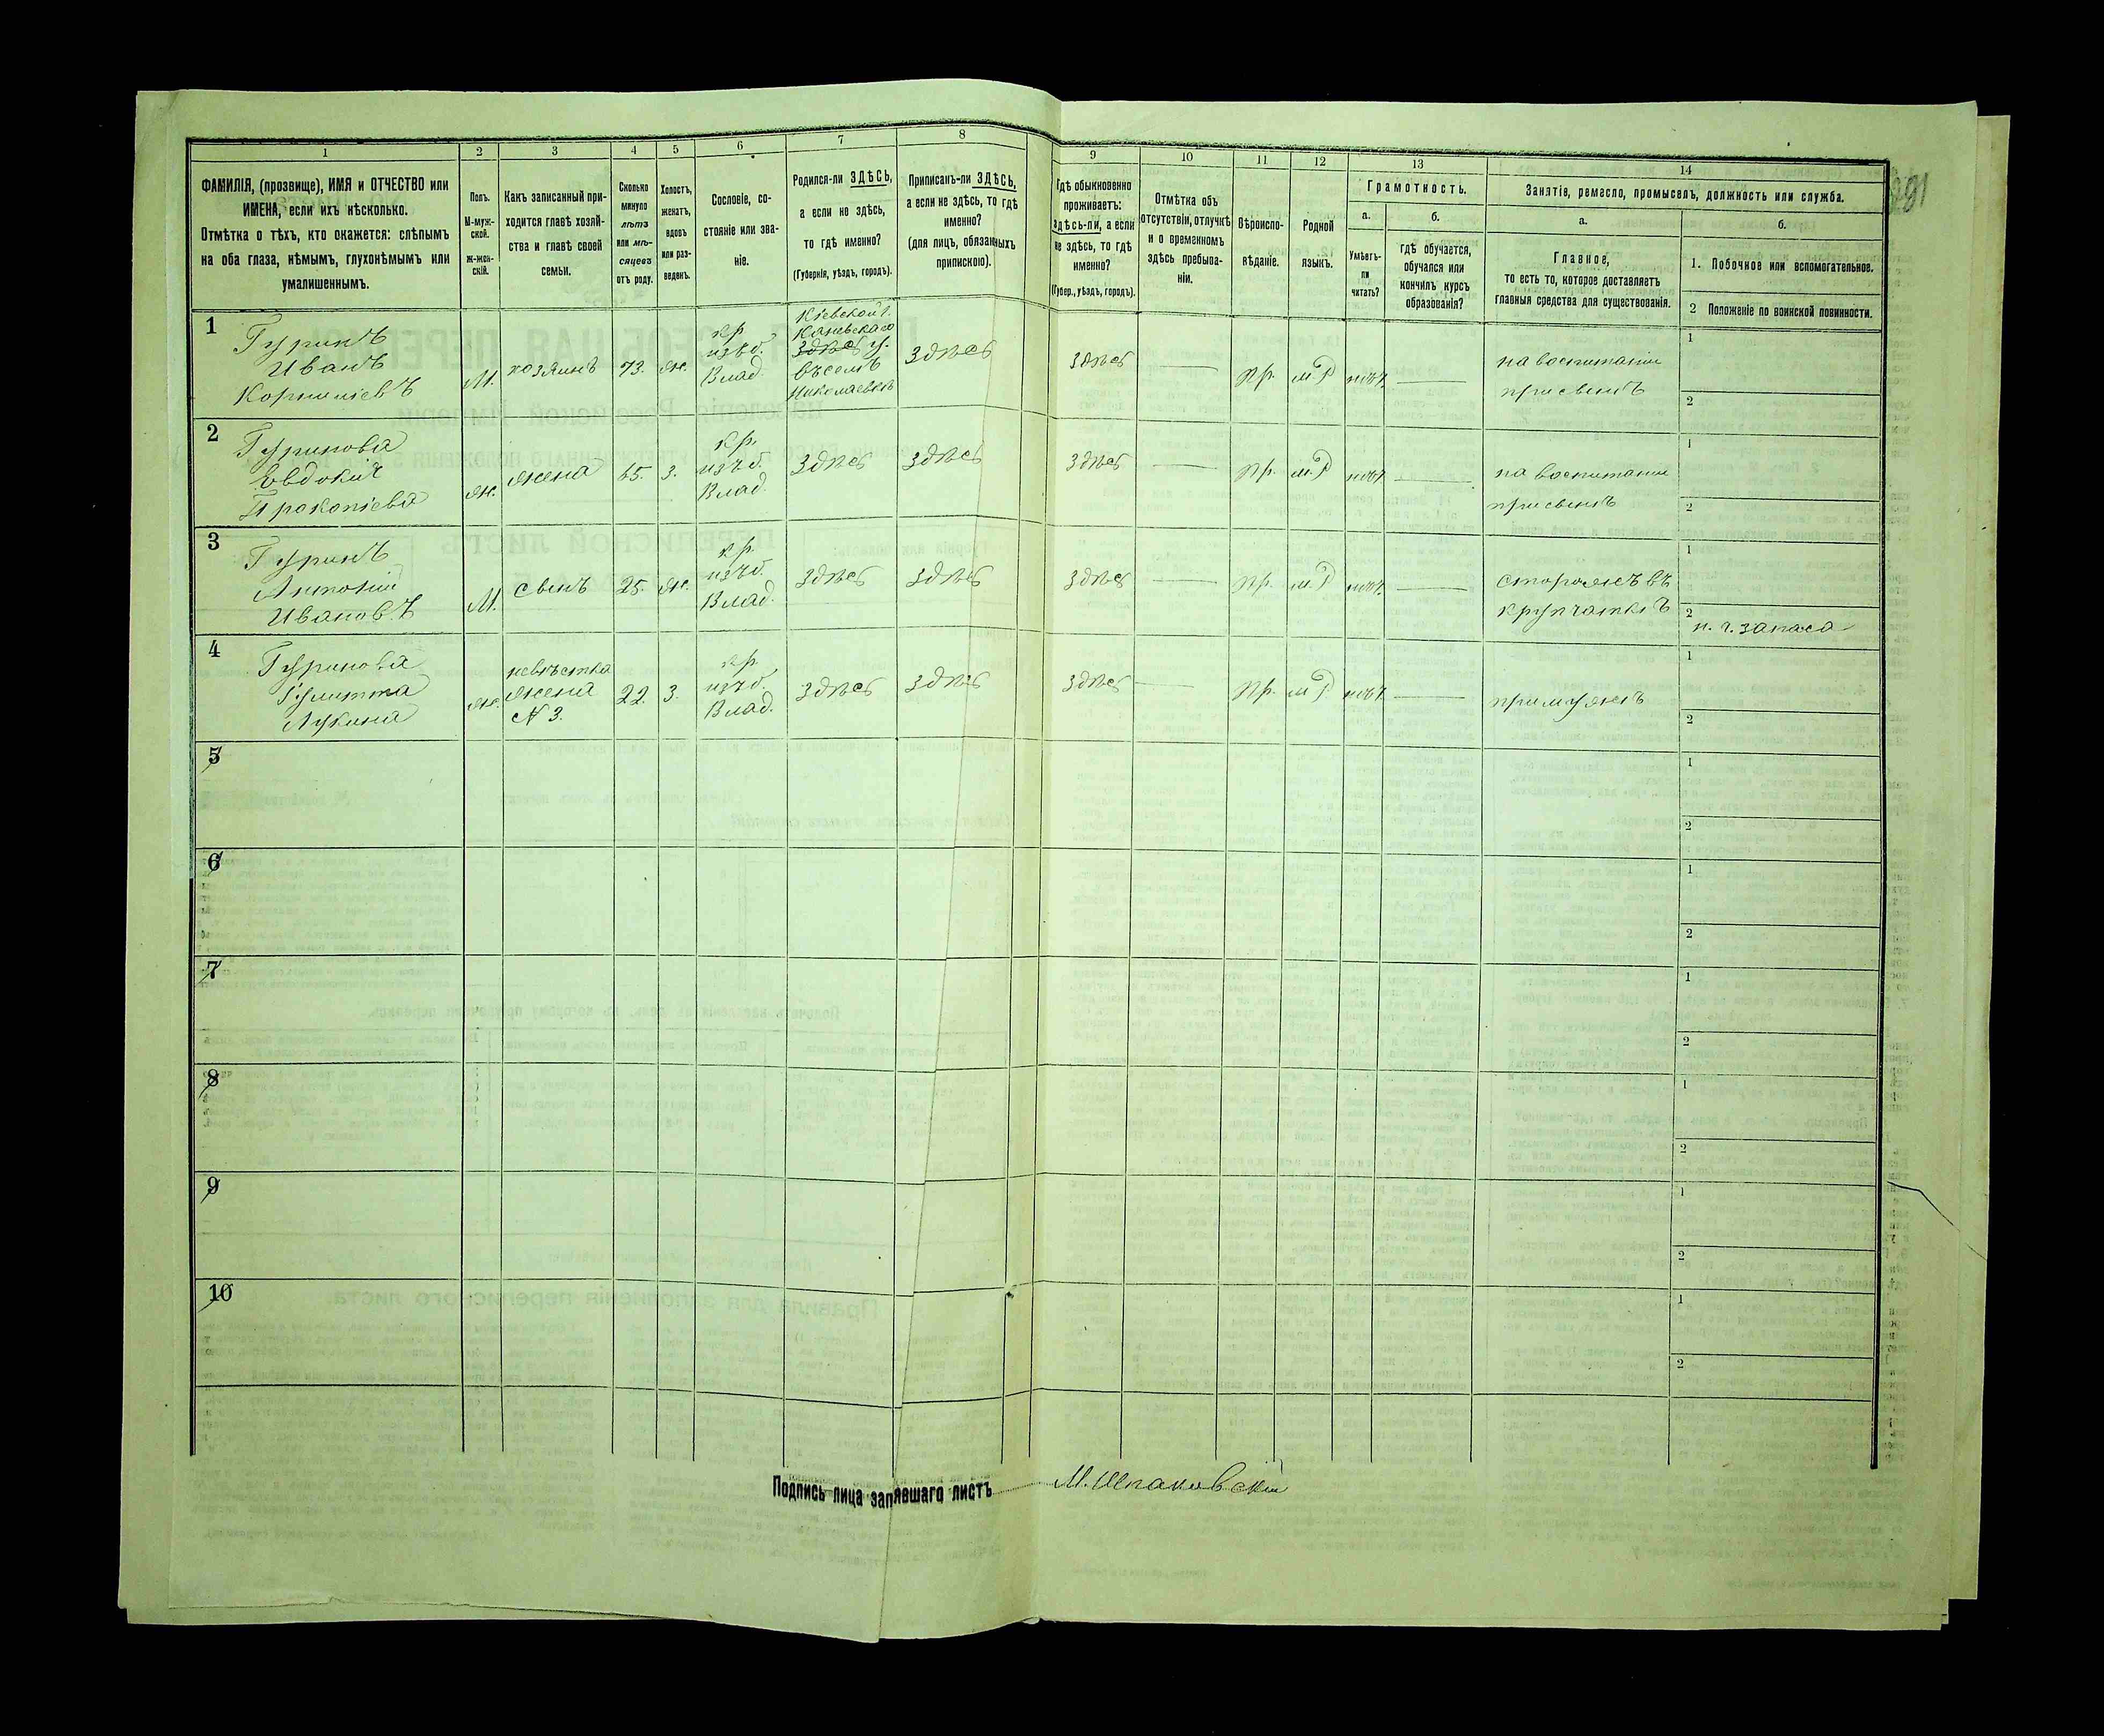 1
2
3
4
5
6
7
8
ФАМИЛІЯ, (прозвище), ИМЯ и ОТЧЕСТВО или
ИМЕНА, если ихъ нѣсколько.
Отмѣтка о тѣхъ, кто окажется: слѣпымъ
на оба глаза, нѣмымъ, глухонѣмымъ или
умалишеннымъ.
Полъ.
М-муж-
ской.
Ж-жен-
скій.
Какъ записанный при-
ходится главѣ хозяй-
ства и главѣ своей
семьи.
Сколько
минуло
лѣтъ
или мѣ-
сяцевъ
отъ роду.
Холостъ,
женатъ,
вдовъ
или раз-
веденъ.
Сословіе, со-
стояніе или зва-
ніе.
Родился-ли ЗДѢСЬ,
а если не здѣсь,
то гдѣ именно?
(Губернія, уѣздъ, городъ).
Приписанъ-ли ЗДѢСЬ,
а если не здѣсь, то гдѣ
именно?
(для лицъ, обязанныхъ
припискою).
9
10
11
12
13
14
Гдѣ обыкновенно
проживаетъ:
Здѣсь-ли, а если
не здѣсь, то гдѣ
именно?
(Губер., уѣздъ, городъ).
Отмѣтка объ
отсутствіи, отлучкѣ
и о временномъ
здѣсь пребыва-
ніи.
Вѣроиспо-
вѣданіе.
Родной
языкъ.
Грамотность.
а.
Умѣетъ-
ли
читать?
б.
гдѣ обучается,
обучался или
кончилъ курсъ
образованія?
Занятіе, ремесло, промыселъ, должность или служба.
а.
Главное,
то есть то, которое доставляетъ
главныя средства для существованія.
б.
1. Побочное или вспомогательное.
2 Положеніе по воинской повинности.
291
1
Гуринъ
Иванъ
Корниліевъ
М.
хозяинъ
73.
ж.
кр.
изъ б.
Влад.
Кіевской г.
Каневскаго
здѣсь у.
въ селѣ
Николаевкѣ
здѣсь
здѣсь
пр.
м. Р
нѣтъ
на воспитаніи
при сынѣ
1
2
2
Гуринова
Евдокія
Прокопіева
ж.
жена
65.
з.
кр.
изъ б.
Влад.
здѣсь
здѣсь
здѣсь
пр.
м. Р
нѣтъ
на воспитаніи
при сынѣ
1
2
3
Гуринъ
Антоній
Ивановъ
М.
сынъ
25.
ж.
кр.
изъ б.
Влад.
здѣсь
здѣсь
здѣсь
пр.
м. Р
нѣтъ
сторожъ въ
крупчаткѣ
1
2
н. ч. запаса
4
Гуринова
Улитта
Лукина
ж.
невѣстка
жена
N 3.
22.
з.
кр.
изъ б.
Влад.
здѣсь
здѣсь
здѣсь
пр.
м. Р
нѣтъ
при мужѣ
1
2
5
1
2
6
1
2
7
1
2
8
1
2
9
1
2
10
1
2
Подпись лица занявшаго листъ
М. Шпаковскій